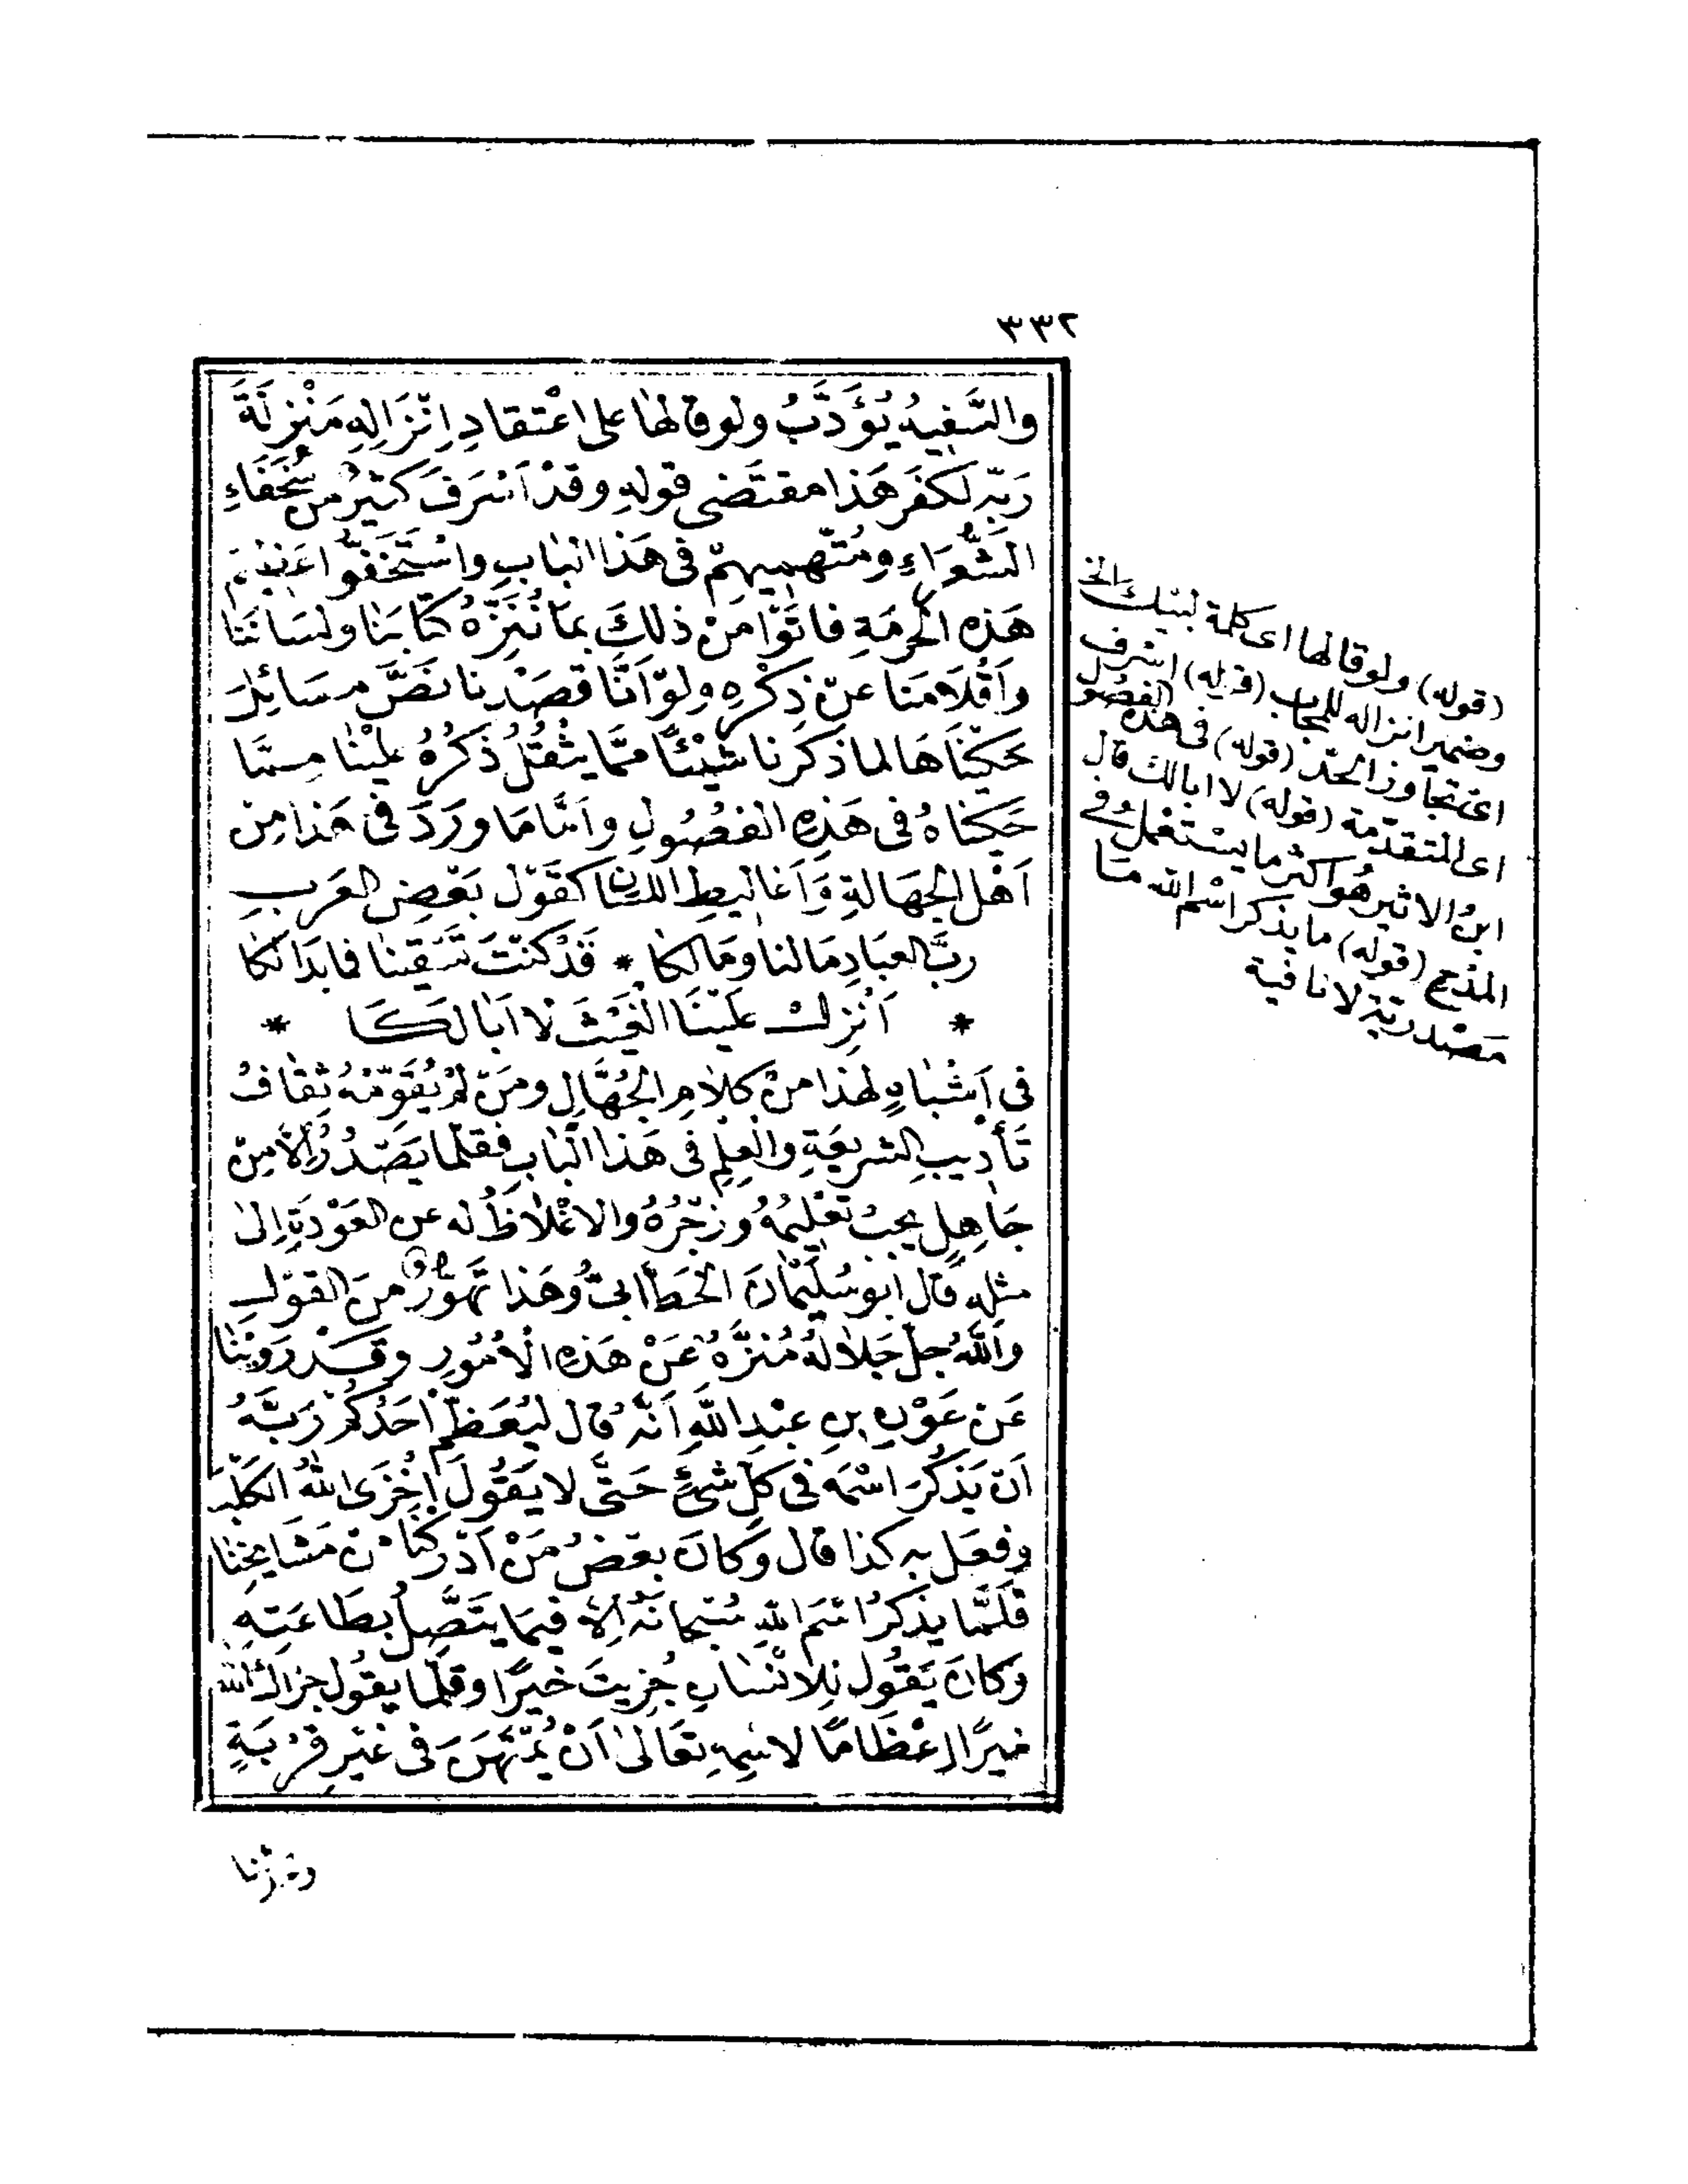 ٣٣٢
والسَّفِيهُ يُؤَدَّبُ ولو قالها على اعْتقادِ اِنْزَالِهِ مَنْزِلَةَ
رَبِّهِ لَكَفَرَ هَذا مقتَضى قولِهِ وقدْ اَسْرَفَ كثيرٌ من سُخَفَاءِ
الشُّعَرَاءِ ومُتَّهَمِيهِمْ في هَذا البَابِ واسْتَخَفُّوا عَظِيمَ
هَذِهِ الحُرمَةِ فاَتَوْا مِنْ ذلِكَ بمَا نُنَزِّهُ كتَابَنا ولسَانَنا
وأقْلامَنا عنْ ذِكْرِهِ ولوْلاَ اَنَّا قصَدْنا نَصَّ مسَائِلَ
حَكَيْنَاهَا لما ذكَرنا شَيْئًا ممَّا يثقُلُ ذكرُهُ علَيْنا مِمَّا
حَكيْناهُ في هَذِهِ الفصُولِ واَمَّا مَا ورَدَ في هَذا مِن
اَهْلِ الجهَالةِ وَأَغاليطِ اللسَانِ كقَوْل بَعْضِ العَربِ
ربَّ العبَادِ مَا لنا ومَا لكا * قَدْ كنْتَ تَسْقينا فما بَدَا لَكا
* اَنْزِل عَلَيْنَا الغَيْثَ لا اَبَا لَكَا *
في اَشْبَاهٍ لهذا منْ كلامِ الجُهَّالِ ومَنْ لمْ يُقَوِّمْهُ ثِقافُ
تَأديبِ الشريعَةِ والعِلمِ في هَذا البَابِ فقلَّما يَصْدُرُ إلاَّ مِنْ
جَاهِلٍ يجبُ تعْليمُهُ وزجْرُهُ والاغْلاظُ له عن العَوْدَةِ إلى
مثلِهِ قال ابو سُلَيْمَانَ الخَطَّابيُّ وهَذا تَهَوُّرٌ منَ القَوْلِ
واللهُ جلَّ جَلالهُ مُنَزَّهٌ عَنْ هَذِهِ الاُمُورِ وقد رَوَيْنا
عَن عَوْنِ بنِ عبْدِ اللهِ اَنَّهُ قال ليُعَظِّمْ اَحَدُكُمْ رَبَّهُ
اَن يَذْكُرَ اسْمَهُ في كلِّ شَيْءٍ حَتَّى لا يَقُولَ اَخْزَى اللهُ الكَلْبَ
وفعَل به كذا قال وكانَ بعْضُ مَنْ اَدْرَكْنَا مِنْ مَشَايِخِنا
قلَّمَا يذكرُ اسْمَ اللهِ سُبْحَانَهُ إلاَّ فيمَا يتَّصِلُ بطَاعَتِهِ
وكانَ يَقُولُ للاِنْسَانِ جُزيتَ خَيْرًا وقلَّما يقُول جزاكَ الله
خيرًا اِعْظَامًا لاسْمِهِ تعَالى اَنْ يُمْتَهَنَ في غيْرِ قُرْبَةٍ
(قوله) ولو قالها اى كلمة لبيك الخ
وضمير انزاله للمجاب (قوله) اسرف
اى تجاوز الحدّ (قوله) في هذه الفصُول
اى المتقدّمة (قوله) لا ابا لك قال
ابنُ الاثير هُو اكثر ما يسْتعْمل في
المدح (قوله) ما يذكر اسْم الله مَا
مصْدريّة لا نافية